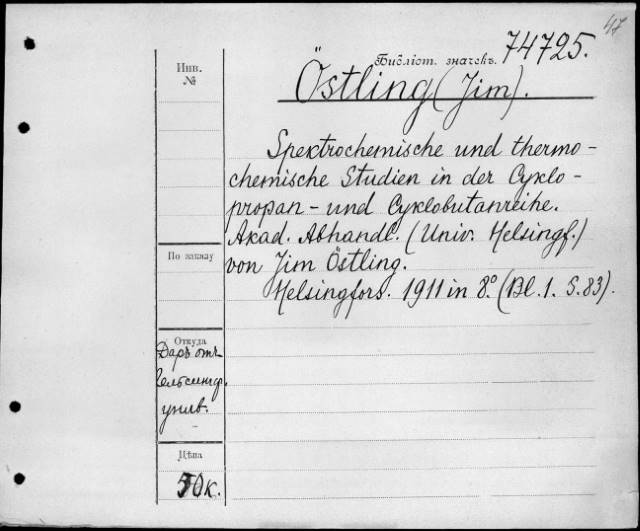 47
Библіот. значекъ. 74725.
Инв.
№
Östling (Jim).
Spektrochemische und thermo-
chemische Studien in der Cyklo-
propan- und Cyklobutanreihe.
Akad. Abhandl. (Univ. Helsingf.)
von Jim Östling.
Helsingfors. 1911 in 8º. (Bl. 1. S. 83).
По заказу
Откуда
Даръ отъ
Гельсингф.
унив.
Цѣна
50 к.